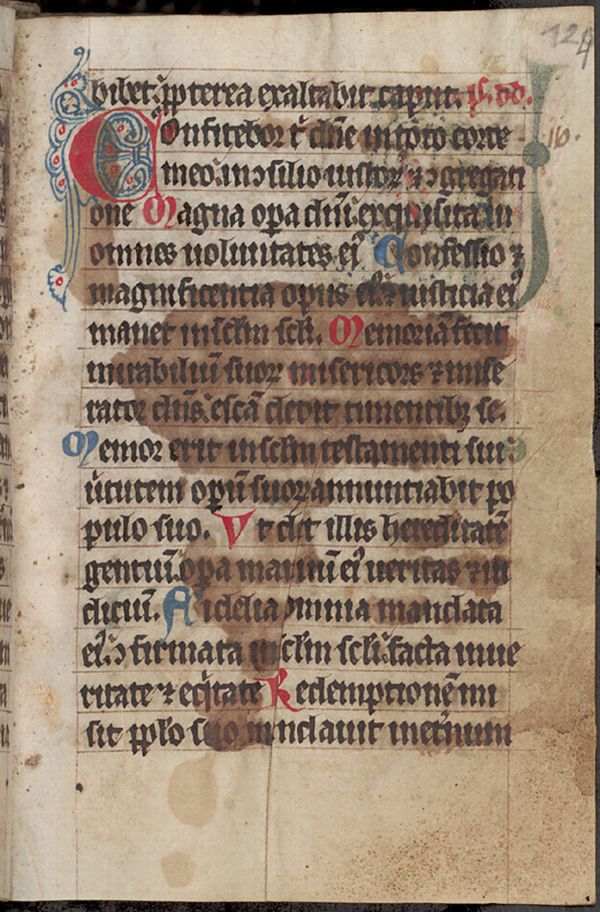 124
bibet ꝓpterea exaltabit caput. ps. dd.
Confitebor t̉ dn̄e in toto corde
meo. in ↄsilio iustoꝝ ⁊ ↄgregati
one Magna oꝑa dn̄i exquisita in
omnes uoluntates ei᷒ Confessio ⁊
magnificentia opus ei᷒ ⁊ iusticia ei᷒
manet in sclm̄ scl̄i. Memoriā fecit
mirabiliū suoꝝ misericors ⁊ mise
rator dn̄s. escā dedit timentibꝫ se.
Memor erit in sclm̄ testamenti sui
ùtutem opeꝝ̄ suoꝝ annuntiabit po
pulo suo. Ut det illis hereditatē
gentiuꝫ̄ oꝑa manuū ei᷒ ueritas ⁊ iu
diciū. Fidelia omnia mandata
ei᷒ ↄfirmata in sclm̄ scl̄i facta in ue
ritate ⁊ eq̇tate Redemptionē mi
sit pplo suo mandauit in et̉num